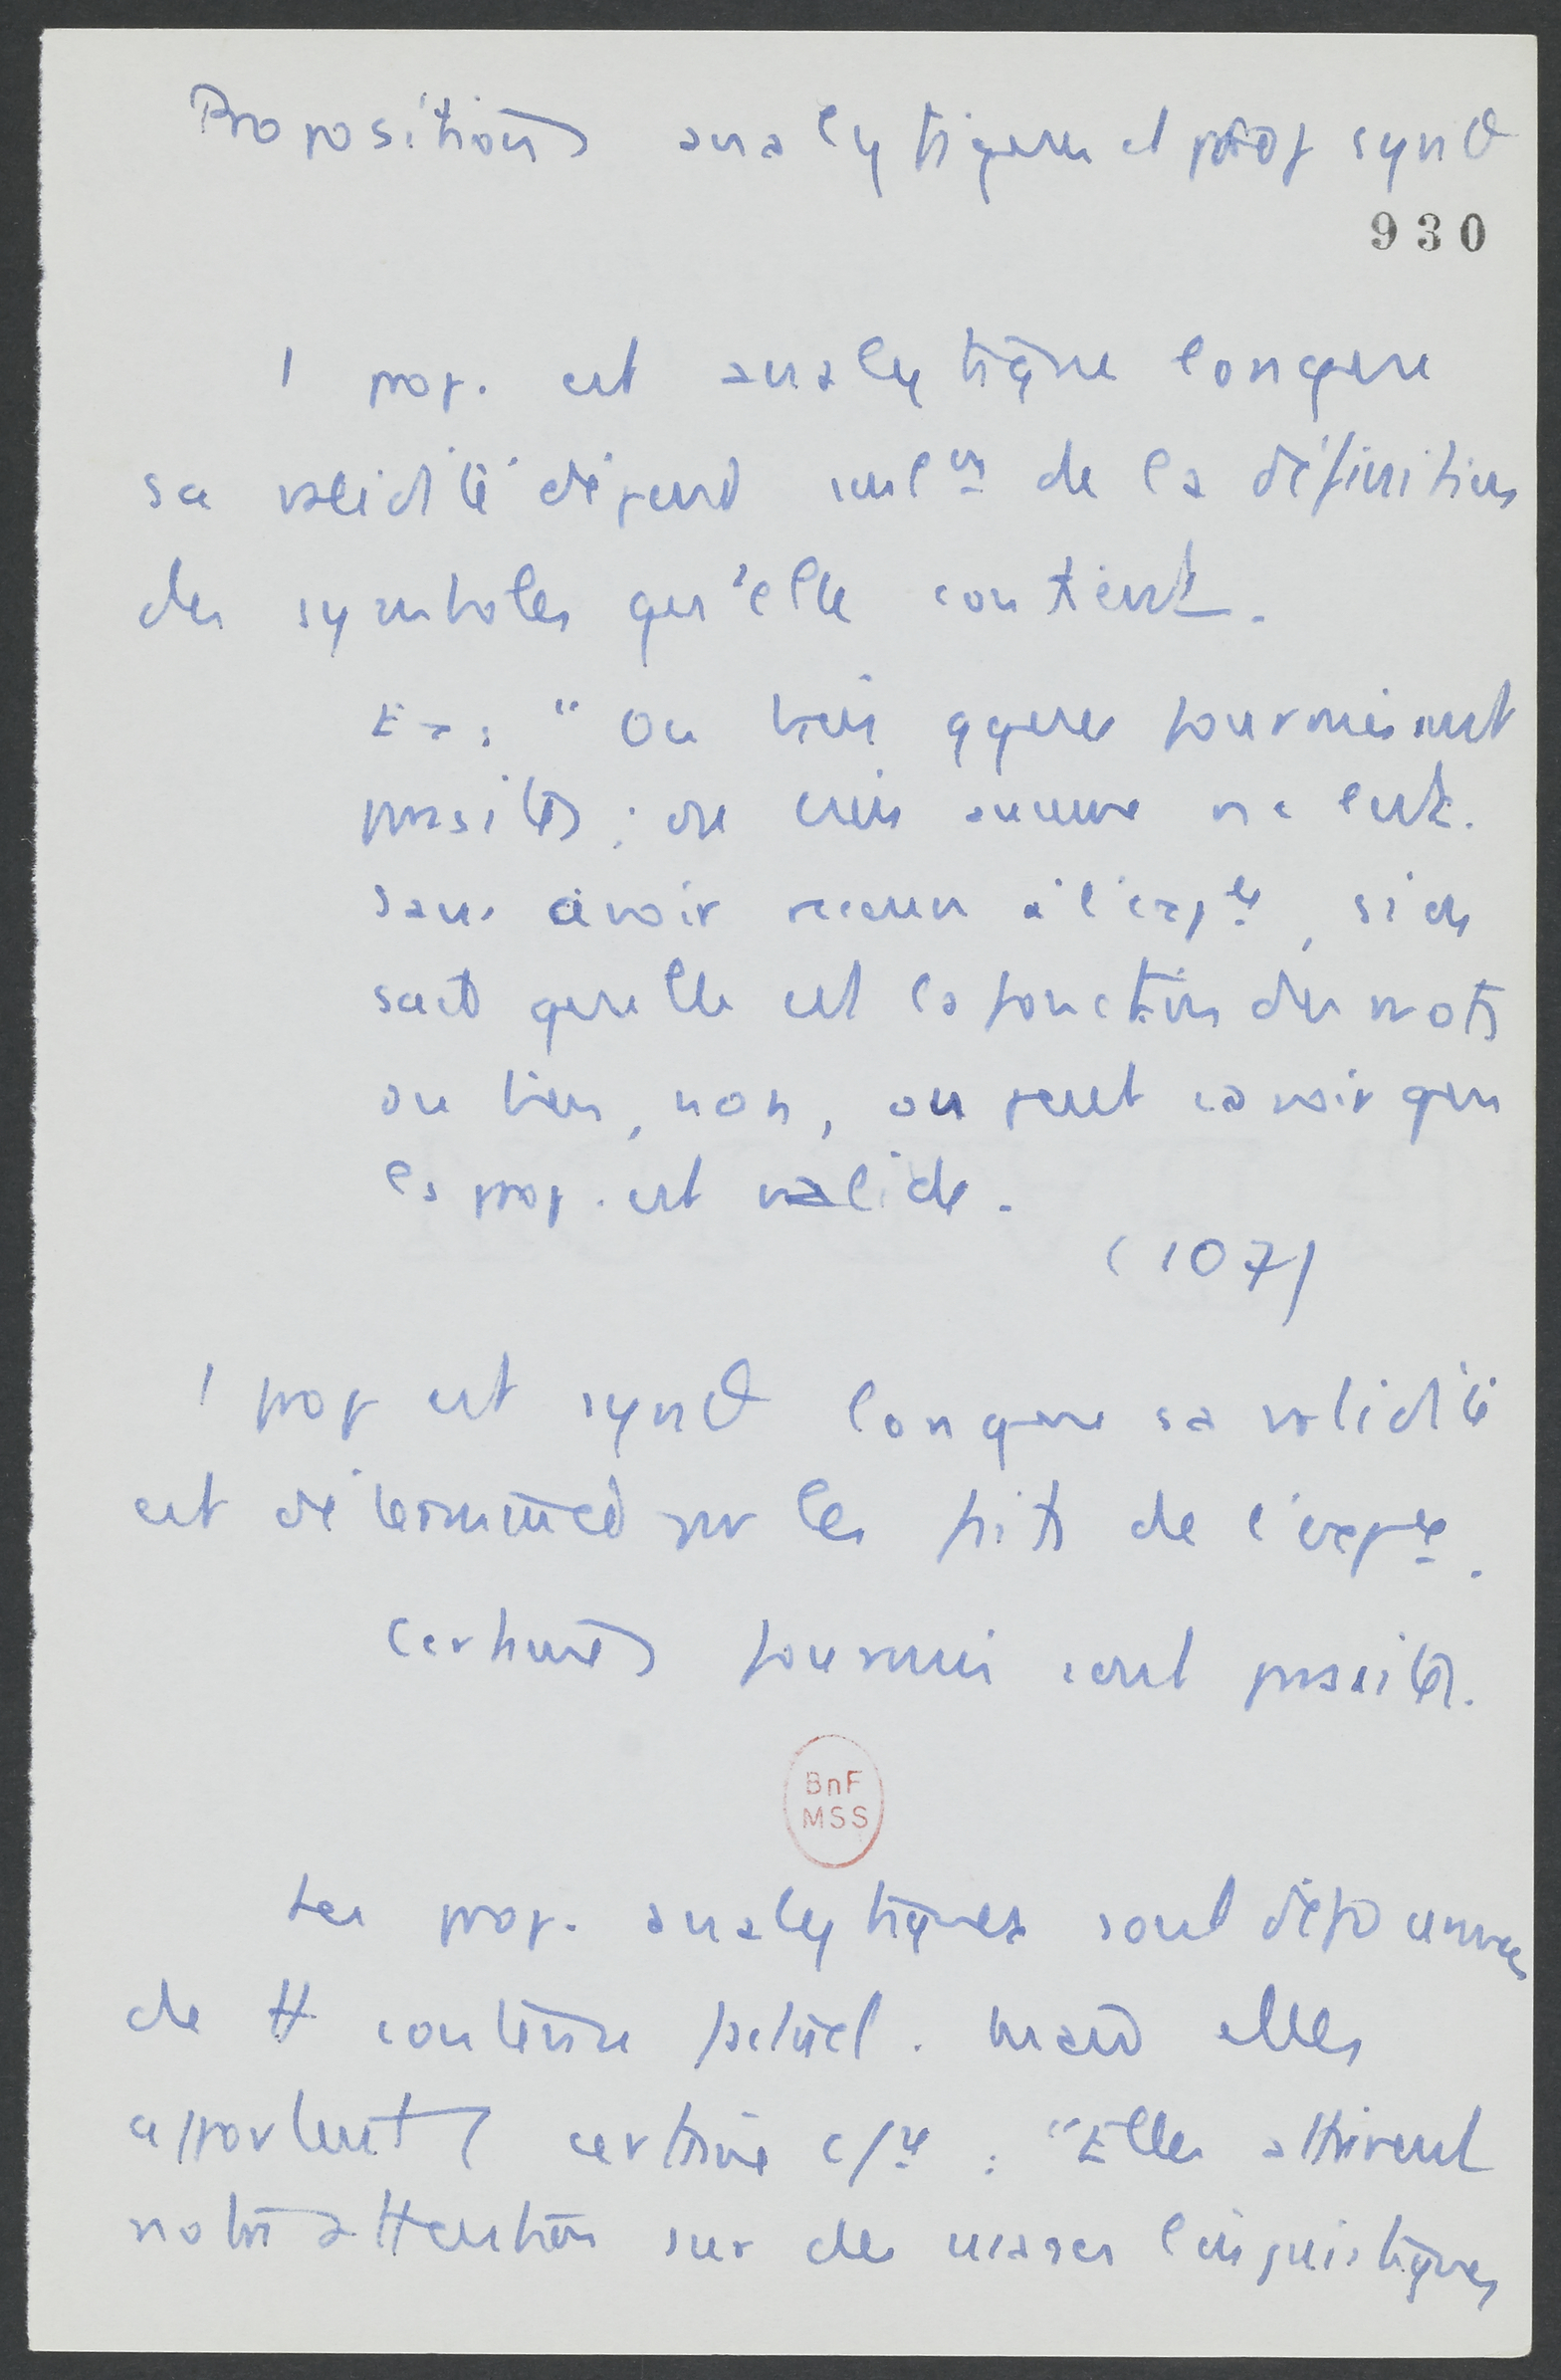 Propositions analytiques et prop synth
930
1 prop. est analytique lorsque
sa validité dépend seulnt de la définition
des symboles qu'elle contient.
Ex: "Ou bien qques fourmis sont
parasites; ou bien aucune ne l'est.
Sans avoir recours à l'expce, si on
sait quelle est la fonction des mots
ou bien, non, on peut savoir que
la prop. est valide.
(107)
1 prop est synth lorsque sa validité
est déterminée par les faits de l'expce.
Certaines fourmis sont parasites.
BnF
MSS
Les prop. analytiques sont dépourvues
de tt contenu factuel. Mais elles
apportent certaine : "Elles attirent
notre attention sur des usages linguistiques